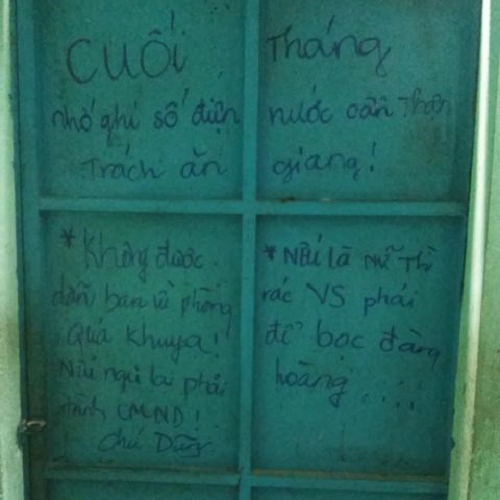 CUỐI Tháng
nhớ ghi số điện nước cẩn Thận
Trách ăn giang!
* Không được
dẫn bạn về phòng
Quá khuya!
Nếu ngủ lại phải
trình CMND!
Chú Dũng
* Nếu là nữ Thì
rác VS phải
để bọc đàng
hoàng.....